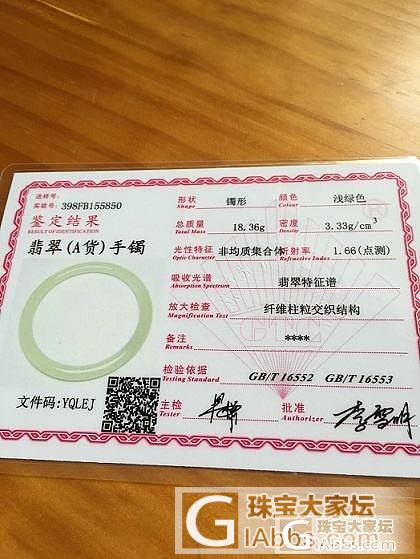 送样号:
实验号: 398FB155850
鉴定结果
RESULT OF IDENTIFICATION
翡翠(A货)手镯
文件码:YQLEJ
形状 镯形 颜色 浅绿色
Shape Colour
总质量 18.36g 密度 3.33g/cm³
Total Mass Density
光性特征 非均质集合体 折射率 1.66(点测)
Optic Character
吸收光谱 翡翠特征谱
Absorption Spectrum
放大检查 纤维柱粒交织结构
Magnification Test
备注 ****
Remarks
检验依据 GB/T 16552 GB/T 16553
Testing Standard
主检 批准
Tester Authorizer
珠宝大家坛
GIAbbs.com